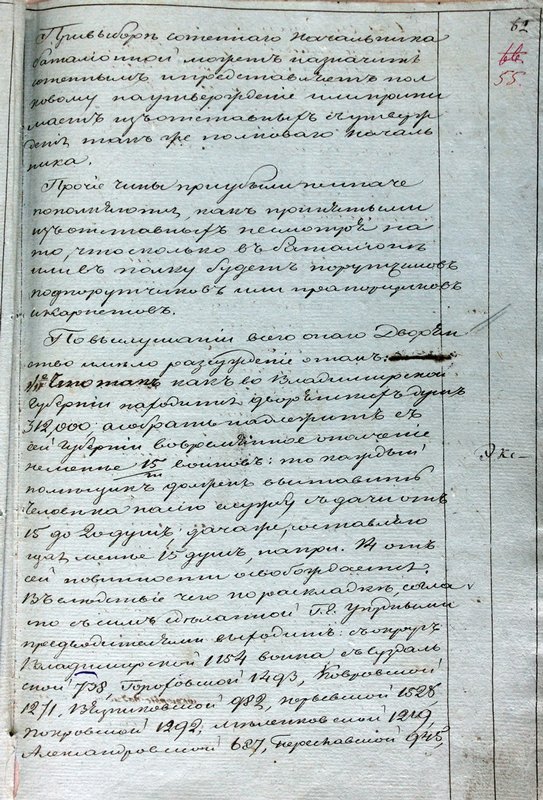 62
55.
При выборе сотеннаго начальника
баталионной может назначить
сотенным и представляет пол
ковому на утверждение или прини
мает из отставных с утверж
дения так же полковаго началь
ника.
Прочие чины при убыли не иначе
пополняются, как принятыми
из отставных не смотря на
то, что сколько в баталионе
или в полку будет порутчиков
подпорутчиков или прапорщиков
и карнетов.
По выслушании всего онаго Дворян
ство имело разсуждение о том:
1е Что так как во Владимирской
Губернии находится дворянских душ
312,000, а собрать надлежит с
сей Губернии во временное ополчение
не менее 15/т воинов: то каждый
помещик должен выставить
человека на сию службу с дачи от
15 до 20 душ; дача же, составляю
щая менее 15 душ, напри. 14 от
сей повинности освобождается.
В следствие чего по раскладке, согла
сно с сим сделанной Гг. Уездными
предводителями выходит: с округ
Владимирской 1154 воина с Суздаль
ской 738, Гороховской 1493, Ковровской
1271, Вязниковской 982, Юрьевской 1528,
Покровской 1292, Меленковской 1219,
Александровской 687, Переславской 945,